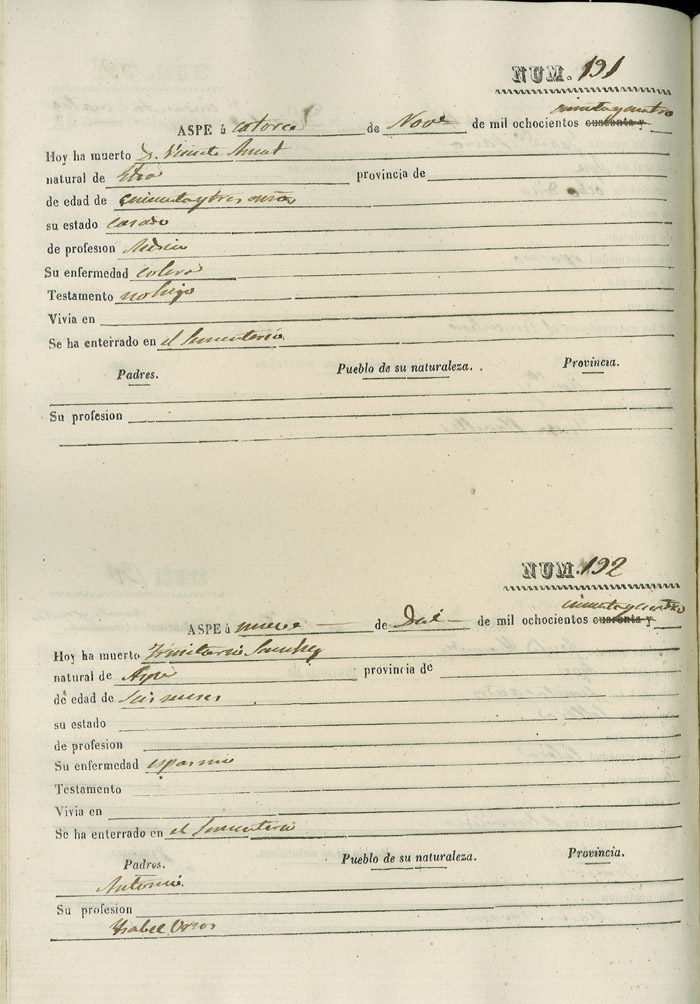 NUM. 191
cincuentaycuatro
ASPE á catorce de Nove de mil ochocientos cuarenta y
Hoy ha muerto D. Vicente Amat
natural de Elda provincia de
de edad de cincuentaytres años
su estado casado
de profesion Medico
Su enfermedad colera
Testamento no hizo
Vivia en
Se ha enterrado en el Sementerio
Padres. Pueblo de su naturaleza. Provincia.
Su profesion
NUM. 192
cincuentaycuatro
ASPE á nueve de de mil ochocientos cuarenta y
Hoy ha muerto Trinitario Sanchez
natural de Aspe provincia de
de edad de seis meses
su estado
de profesion
Su enfermedad espasmo
Testamento
Vivia en
Se ha enterrado en el Sementerio
Padres. Pueblo de su naturaleza. Provincia.
Antonio
Su profesion
Ysabel